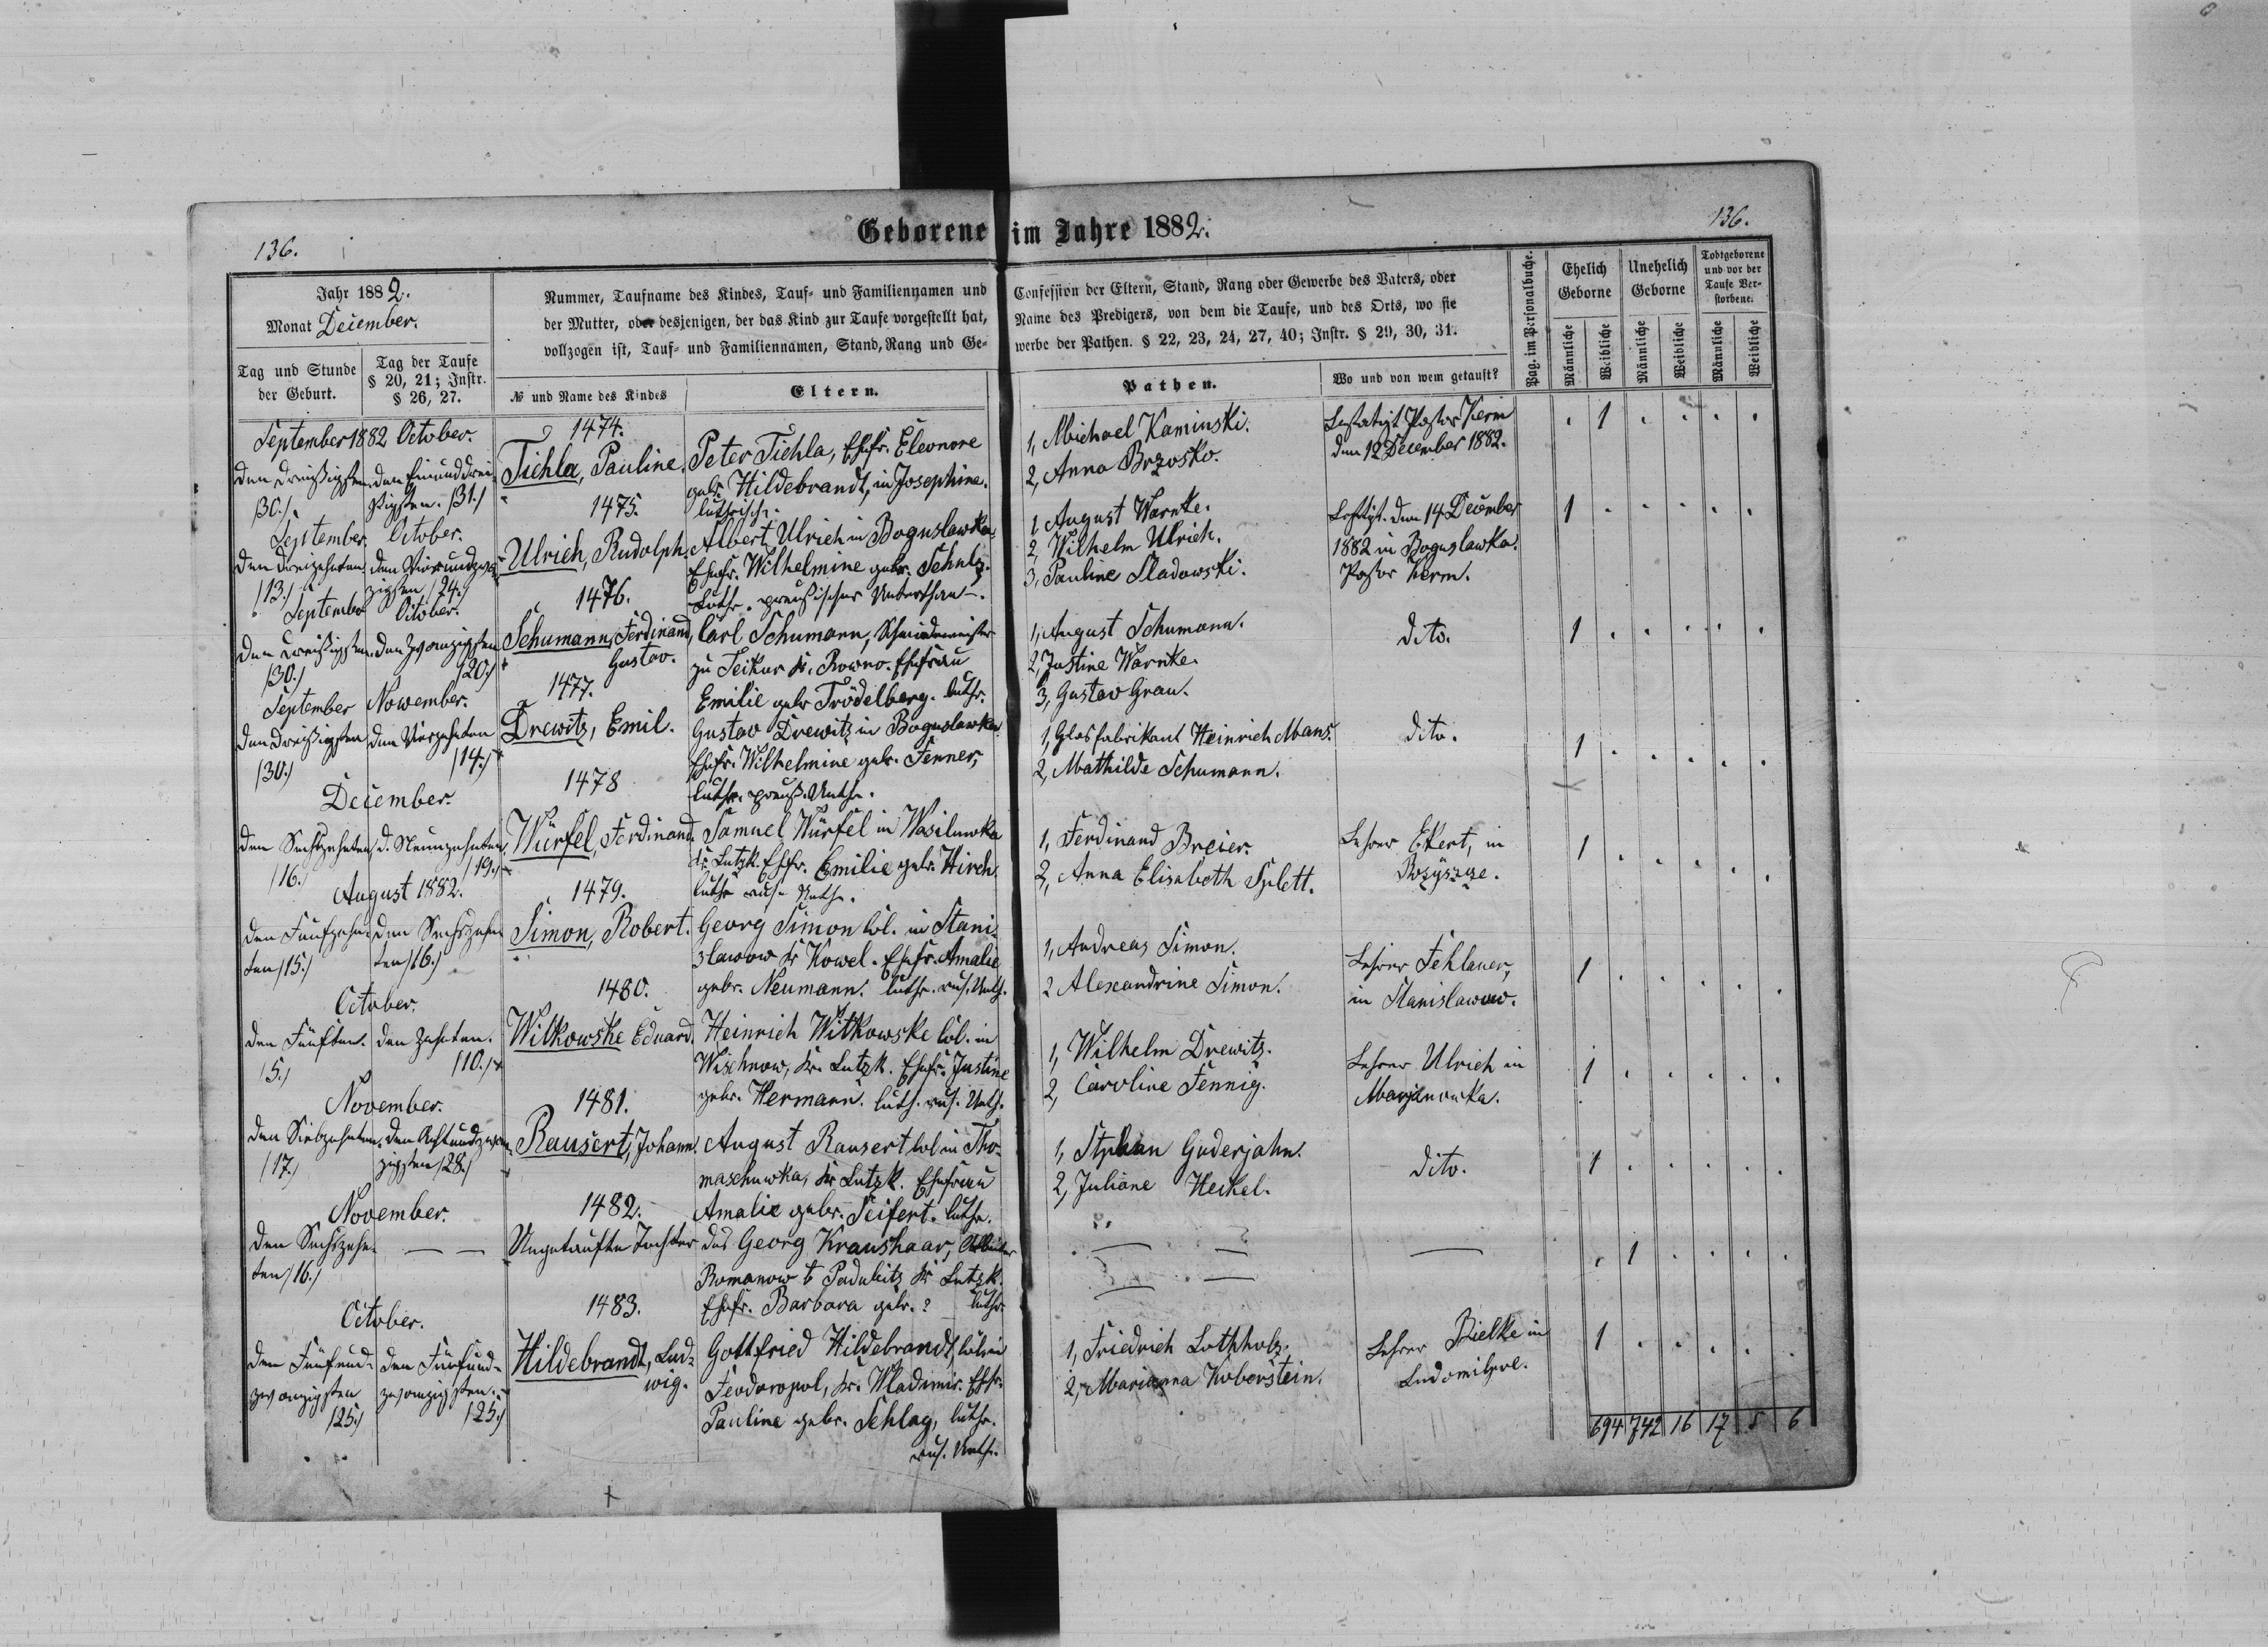 136.
Geborene im Jahre 1882.
136.
Jahr 1882.
Monat December.
Nummer, Taufname des Kindes, Tauf- und Familiennamen und
der Mutter, oder desjenigen, der das Kind zur Taufe vorgestellt hat,
vollzogen ist, Tauf- und Familiennamen, Stand, Rang und Ge-
Confession der Eltern, Stand, Rang oder Gewerbe des Vaters, oder
Name des Predigers, von dem die Taufe, und des Orts, wo sie
werbe der Pathen. § 22, 23, 24, 27, 40; Instr. § 29, 30, 31.
Pag. im Personalbuche.
Ehelich
Geborne
Unehelich
Geborne
Todtgeborene
und vor der
Taufe Ver-
storbene.
Tag und Stunde
der Geburt.
Tag der Taufe
§ 20, 21; Instr.
§ 26, 27.
№ und Name des Kindes
Eltern.
Pathen.
Wo und von wem getauft?
Männliche
Weibliche
Männliche
Weibliche
Männliche
Weibliche
September 1882 October.
den dreißigsten
/30./
den Einunddrei-
ßigsten. /31./
1474.
Tichla, Pauline.
Peter Tichla, Ehefr. Eleonore
gebr. Hildebrandt, in Josephine.
luthrisch.
1, Michael Kaminski.
2, Anna Brzosko.
Bestätigt Pastor Kerm
den 12 December 1882.
. 1 . . . .
September October.
den dreizehnten
/13./
den Vierundzwan-
zigsten /24./
1475.
Ulrich, Rudolph
Albert Ulrich in Boguslawka,
Ehefr. Wilhelmine gebr. Schulz.
Luthr. preußischer Unterthan.
1, August Warnke.
2, Wilhelm Ulrich.
3, Pauline Sladowski.
Bestätigt. den 14 December
1882 in Boguslawka.
Pastor Kerm.
1 . . . . .
September October.
den dreißigsten
/30./
den Zwanzigsten
/20./
1476.
Schumann, Ferdinand,
Gustav.
Carl Schumann, Schmidemeister
zu Teikur Kr. Rowno. Ehefrau
Emilie gebr Trödelberg. luthr.
1, August Schumann.
2, Justine Warnke.
3, Gustav Grau.
dito.
1 . . . . .
September November.
den dreißigsten
/30./
den Vierzehnten
/14./
1477.
Drewitz, Emil.
Gustav Drewitz in Boguslawka
Ehefr. Wilhelmine gebr. Fenner,
luthr. preuß. Unth.
1, Glasfabrikant Heinrich Mans.
2, Mathilde Schumann.
dito.
1 . . . . .
December.
den Sechszehnten
/16./
d. Neunzehnten
/19./
1478
Würfel, Ferdinand.
Samuel Würfel in Wasilewka
Kr. Lutzk. Ehefr. Emilie gebr. Hirch
luthr russ. Unth.
1, Ferdinand Breier.
2, Anna Elisabeth Splett.
Lehrer Ekert, in
Rozyszze.
1 . . . . .
August 1882.
den Fünfzehn-
ten /15./
den Sechszehn
ten /16./
1479.
Simon, Robert.
Georg Simon Col. in Stani-
slawow Kr Kowel. Ehefr. Amalie
gebr. Neumann. luthr. russ. Unth.
1, Andreas Simon.
2 Alexandrine Simon.
Lehrer Fehlauer,
in Stanislawow.
1 . . . . .
October.
den Fünften.
/5./
den Zehnten.
/10./
1480.
Witkowske Eduard.
Heinrich Witkowske Col. in
Wischnow, Kr. Lutzk. Ehefr. Justine
gebr. Hermann. luth. russ. Unth.
1, Wilhelm Drewitz.
2, Caroline Fennig.
Lehrer Ulrich in
Marjanowka.
1 . . . . .
November.
den Siebzehnten.
/17./
den Achtundzwan-
zigsten /28./
1481.
Rausert, Johann.
August Rausert Col in Tho-
maschuwka, Kr Lutzk. Ehefrau
Amalie gebr. Seifert. luthr.
1, Stphan Guderjahn.
2, Juliane Heckel.
dito.
1 . . . . .
November.
den Sechszehn-
ten /16./
— —
1482.
Ungetaufte Tochter
des Georg Kraushaar, Arbeiter
Romanow b Paduleitz Kr Lutzk.
Ehefr. Barbara gebr. ? luthr.
— —
— —
—
. 1 . . . .
October.
den Fünfund-
zwanzigsten
/25./
den Fünfund-
zwanzigsten.
/25./
1483.
Hildebrandt, Lud-
wig.
Gottfried Hildebrandt, Col. in
Teodoropol, Kr. Wladimir. Ehfr.
Pauline gebr. Schlag, luthr.
russ. Unth.
1, Friedrich Lothholz.
2, Marianna Koberstein.
Lehrer Bielke in
Ludomilpol.
1 . . . . .
694 742 16 17 5 6